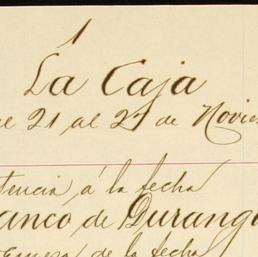 1
La Caja
el 21 al 27 de Novie
tencia á la fecha
anco de Durango
de la fecha